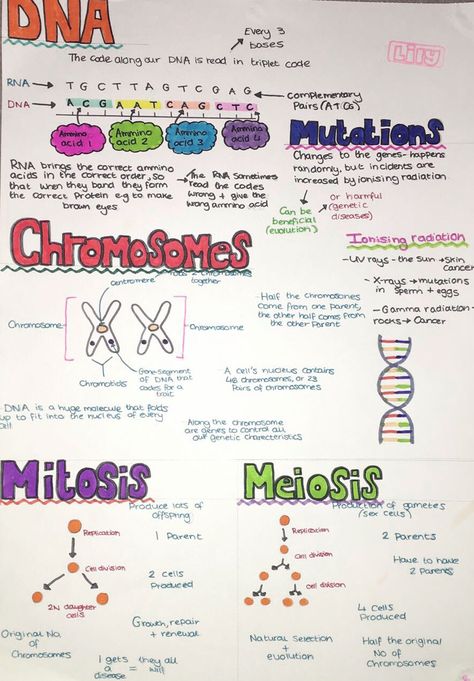 DNA
Every 3
bases
The code along our DNA is read in triplet code
Lily
RNA
T G C T T A G T C G A G
DNA
A C G A A T C A G C T C
complementary
Pairs (AT CG)
Ammino
acid 1
Ammino
acid 2
Ammino
acid 3
Ammino
acid 4
RNA brings the correct ammino
acids in the correct order, so
that when they bond they form
the correct Protein e.g to make
brown eyes
The RNA sometimes
read the codes
wrong + give the
wrong ammino acid
Mutations
Changes to the genes- happens
randomly, but incidents are
increased by ionising radiation
Can be
beneficial
(evolution)
or harmful
(genetic
diseases)
Ionising radiation
- UV rays - the Sun → Skin
cancer
- X-rays → mutations
in Sperm + eggs
- Gamma radiation -
rocks → Cancer
Chromosomes
centromere
2 chromosomes
together
Chromosome
Chromosome
Chromotids
Gene-Segment
of DNA that
codes for a
trait
- Half the chromosomes
come from one parent,
the other half comes from
the other Parent
A cell's nucleus contains
46 chromosomes, or 23
Pairs of chromosomes
- DNA is a huge molecule that folds
up to fit into the nucleus of every
cell
Along the chromosome
are genes to control all
our genetic characteristics
Mitosis
Produce lots of
offspring
Replication
1 Parent
Cell division
2 cells
Produced
2N daughter
cells
Growth, repair
+ renewal
Original No.
of
Chromosomes
1 gets
a
disease
=
they all
will
Meiosis
Production of gametes
(sex cells)
Replication
2 Parents
Cell division
Have to have
2 Parents
Cell division
4 cells
Produced
Natural selection
+
evolution
Half the original
No of
Chromosomes